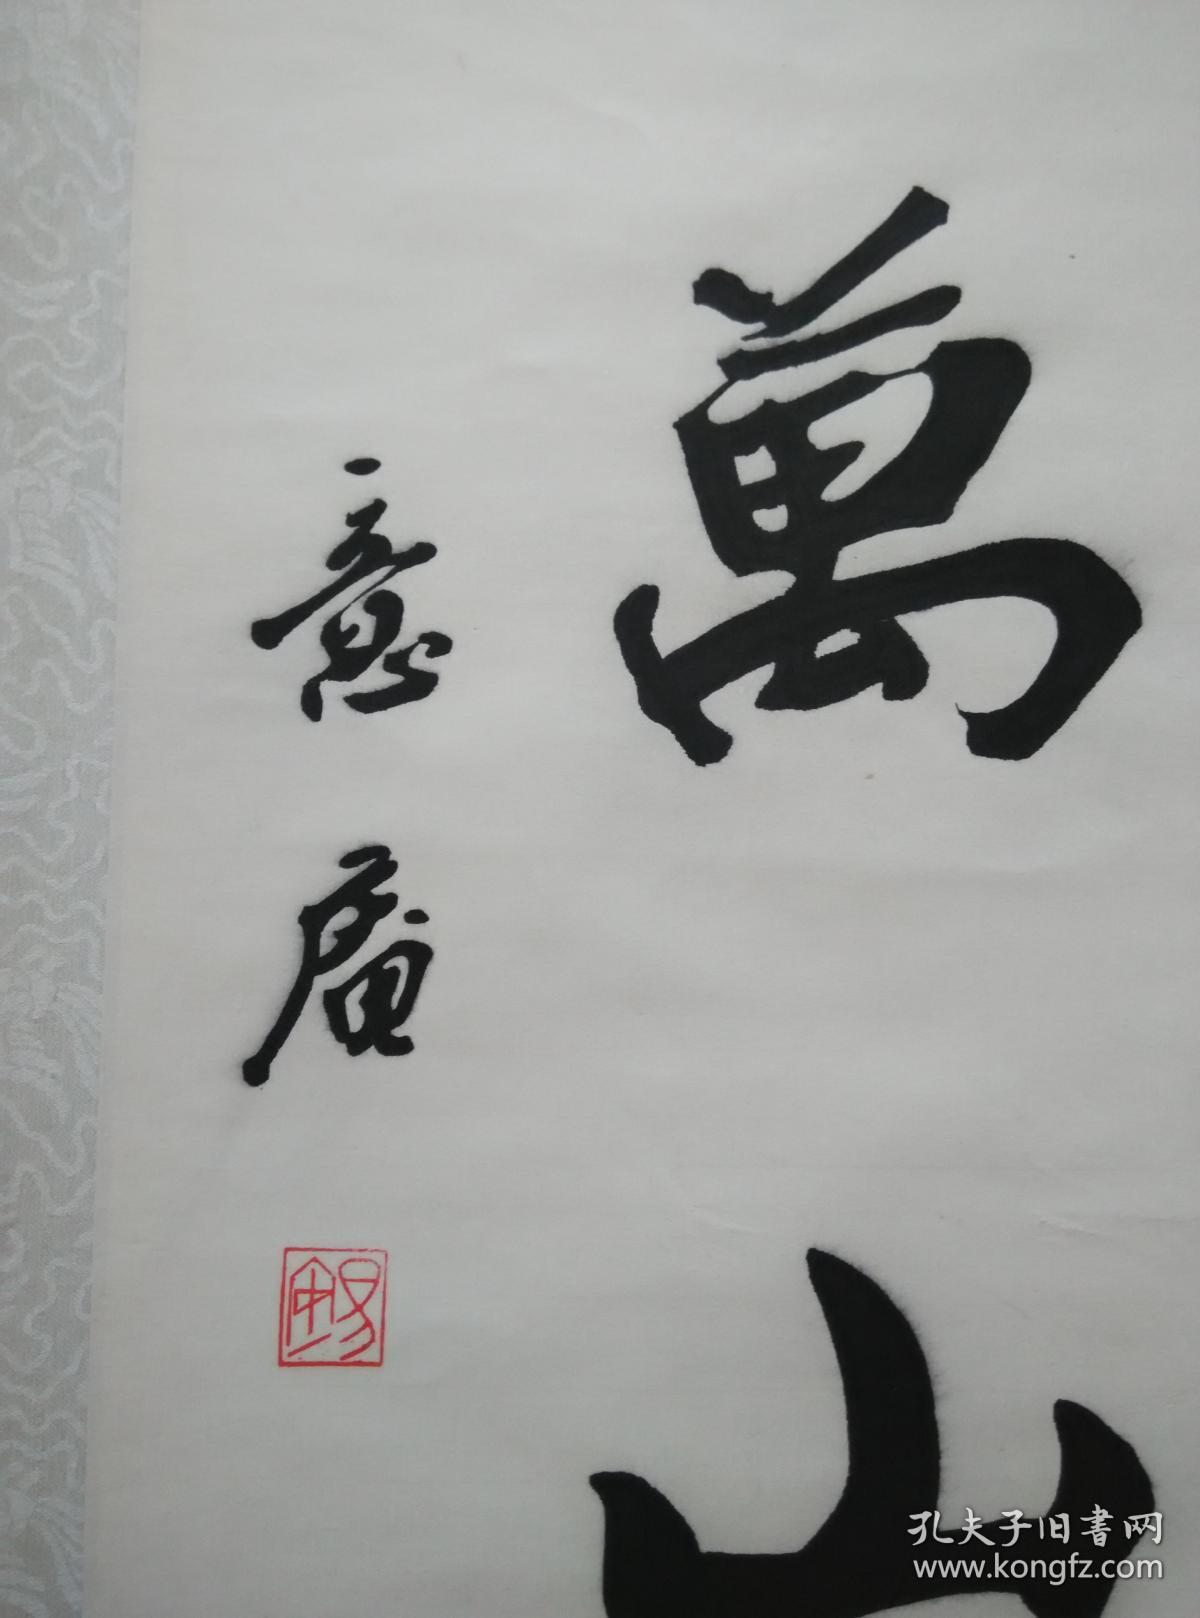 萬山
意庵
錫
孔夫子旧書网
www.kongfz.com